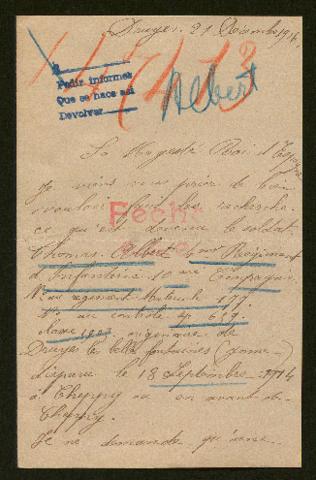 Druyes. 21 Décembre 1914.
147473
Albert
Pedir informes
Que se hace asi
Devolver
Sa Majesté Roi d'Espagne
Je viens vous prier de bien
vouloir faire les recherche
ce qu'est devenu le soldat
Fecho
Thomas Albert Regiment
d'Infanterie 10 me Compagnie
No au regiment Matricule 177.
No au controle 619.
classe originaire de
Druyes les belles fontaines (Yonne)
disparu le 18 Septembre 1914
à Cheppy ou en avant de
Cheppy.
Je ne demande qu'une